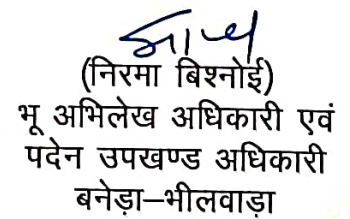 (निरमा बिश्नोई)
भू अभिलेख अधिकारी एवं
पदेन उपखण्ड अधिकारी
बनेड़ा–भीलवाड़ा